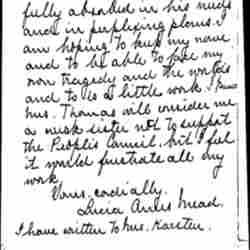 fully absorbed in his needs
and in perplexing plans. I
am hoping to keep my nerve
and to be able to face my
own tragedy and the world's
and to do a little work. I know
Mrs. Thomas will consider me
a weak sister not to support
the People's Council, but I feel
it would frustrate all my
work.
Yours, cordially.
Lucia Ames Mead.
I have written to Mrs. Karsten.